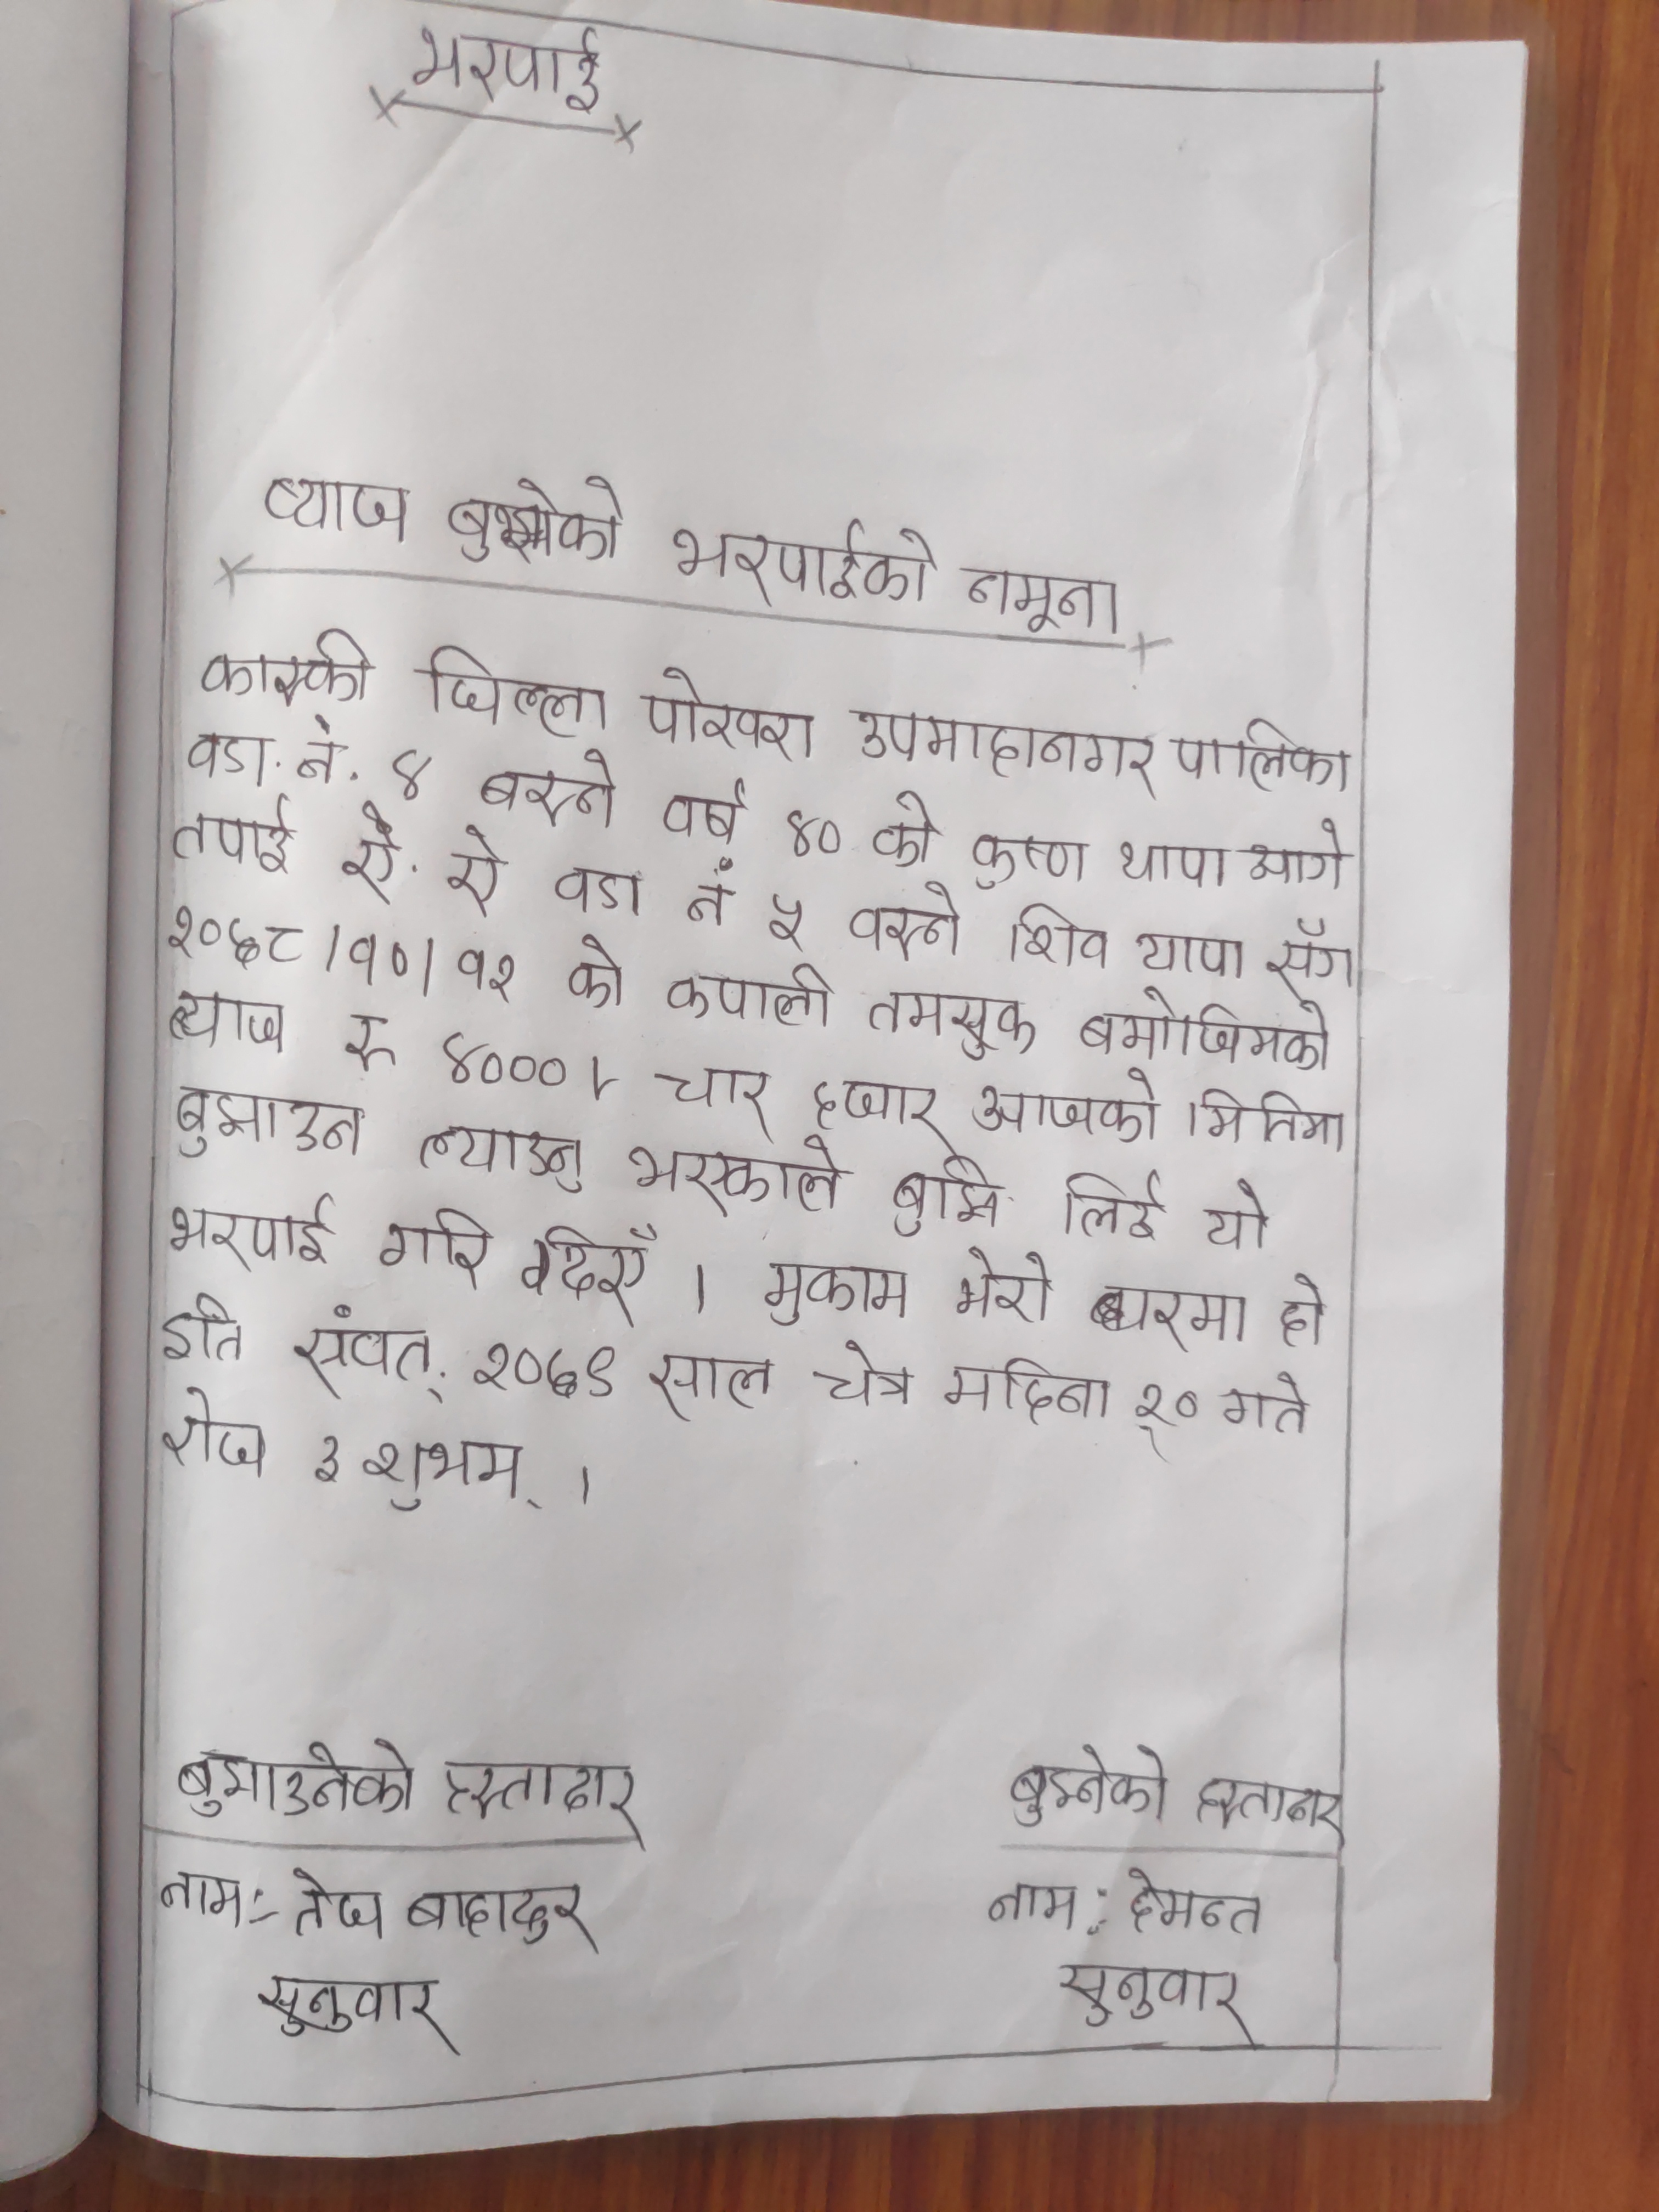 भरपाई
व्याज बुझेको भरपाईको नमूना
कास्की जिल्ला पोखरा उपमाहानगर पालिका
वडा. नं. ४ बस्ने वर्ष ४० को कृष्ण थापा आगे
तपाई ऐ. ऐ वडा नं ५ वस्ने शिव थापा सँग
२०६८।१०।१२ को कपाली तमसुक बमोजिमको
ब्याज रु ४०००।- चार हजार आजको मितिमा
बुझाउन ल्याउनु भएकाले बुझि लिई यो
भरपाई गरि दिएँ । मुकाम मेरो घरमा हो
इति संवत् २०६९ साल चेत्र महिना २० गते
रोज ३ शुभम् ।
बुझाउनेको हस्ताक्षर
बुझ्नेको हस्ताक्षर
नामः- तेज बाहादुर
नाम : हेमन्त
सुनुवार
सुनुवार